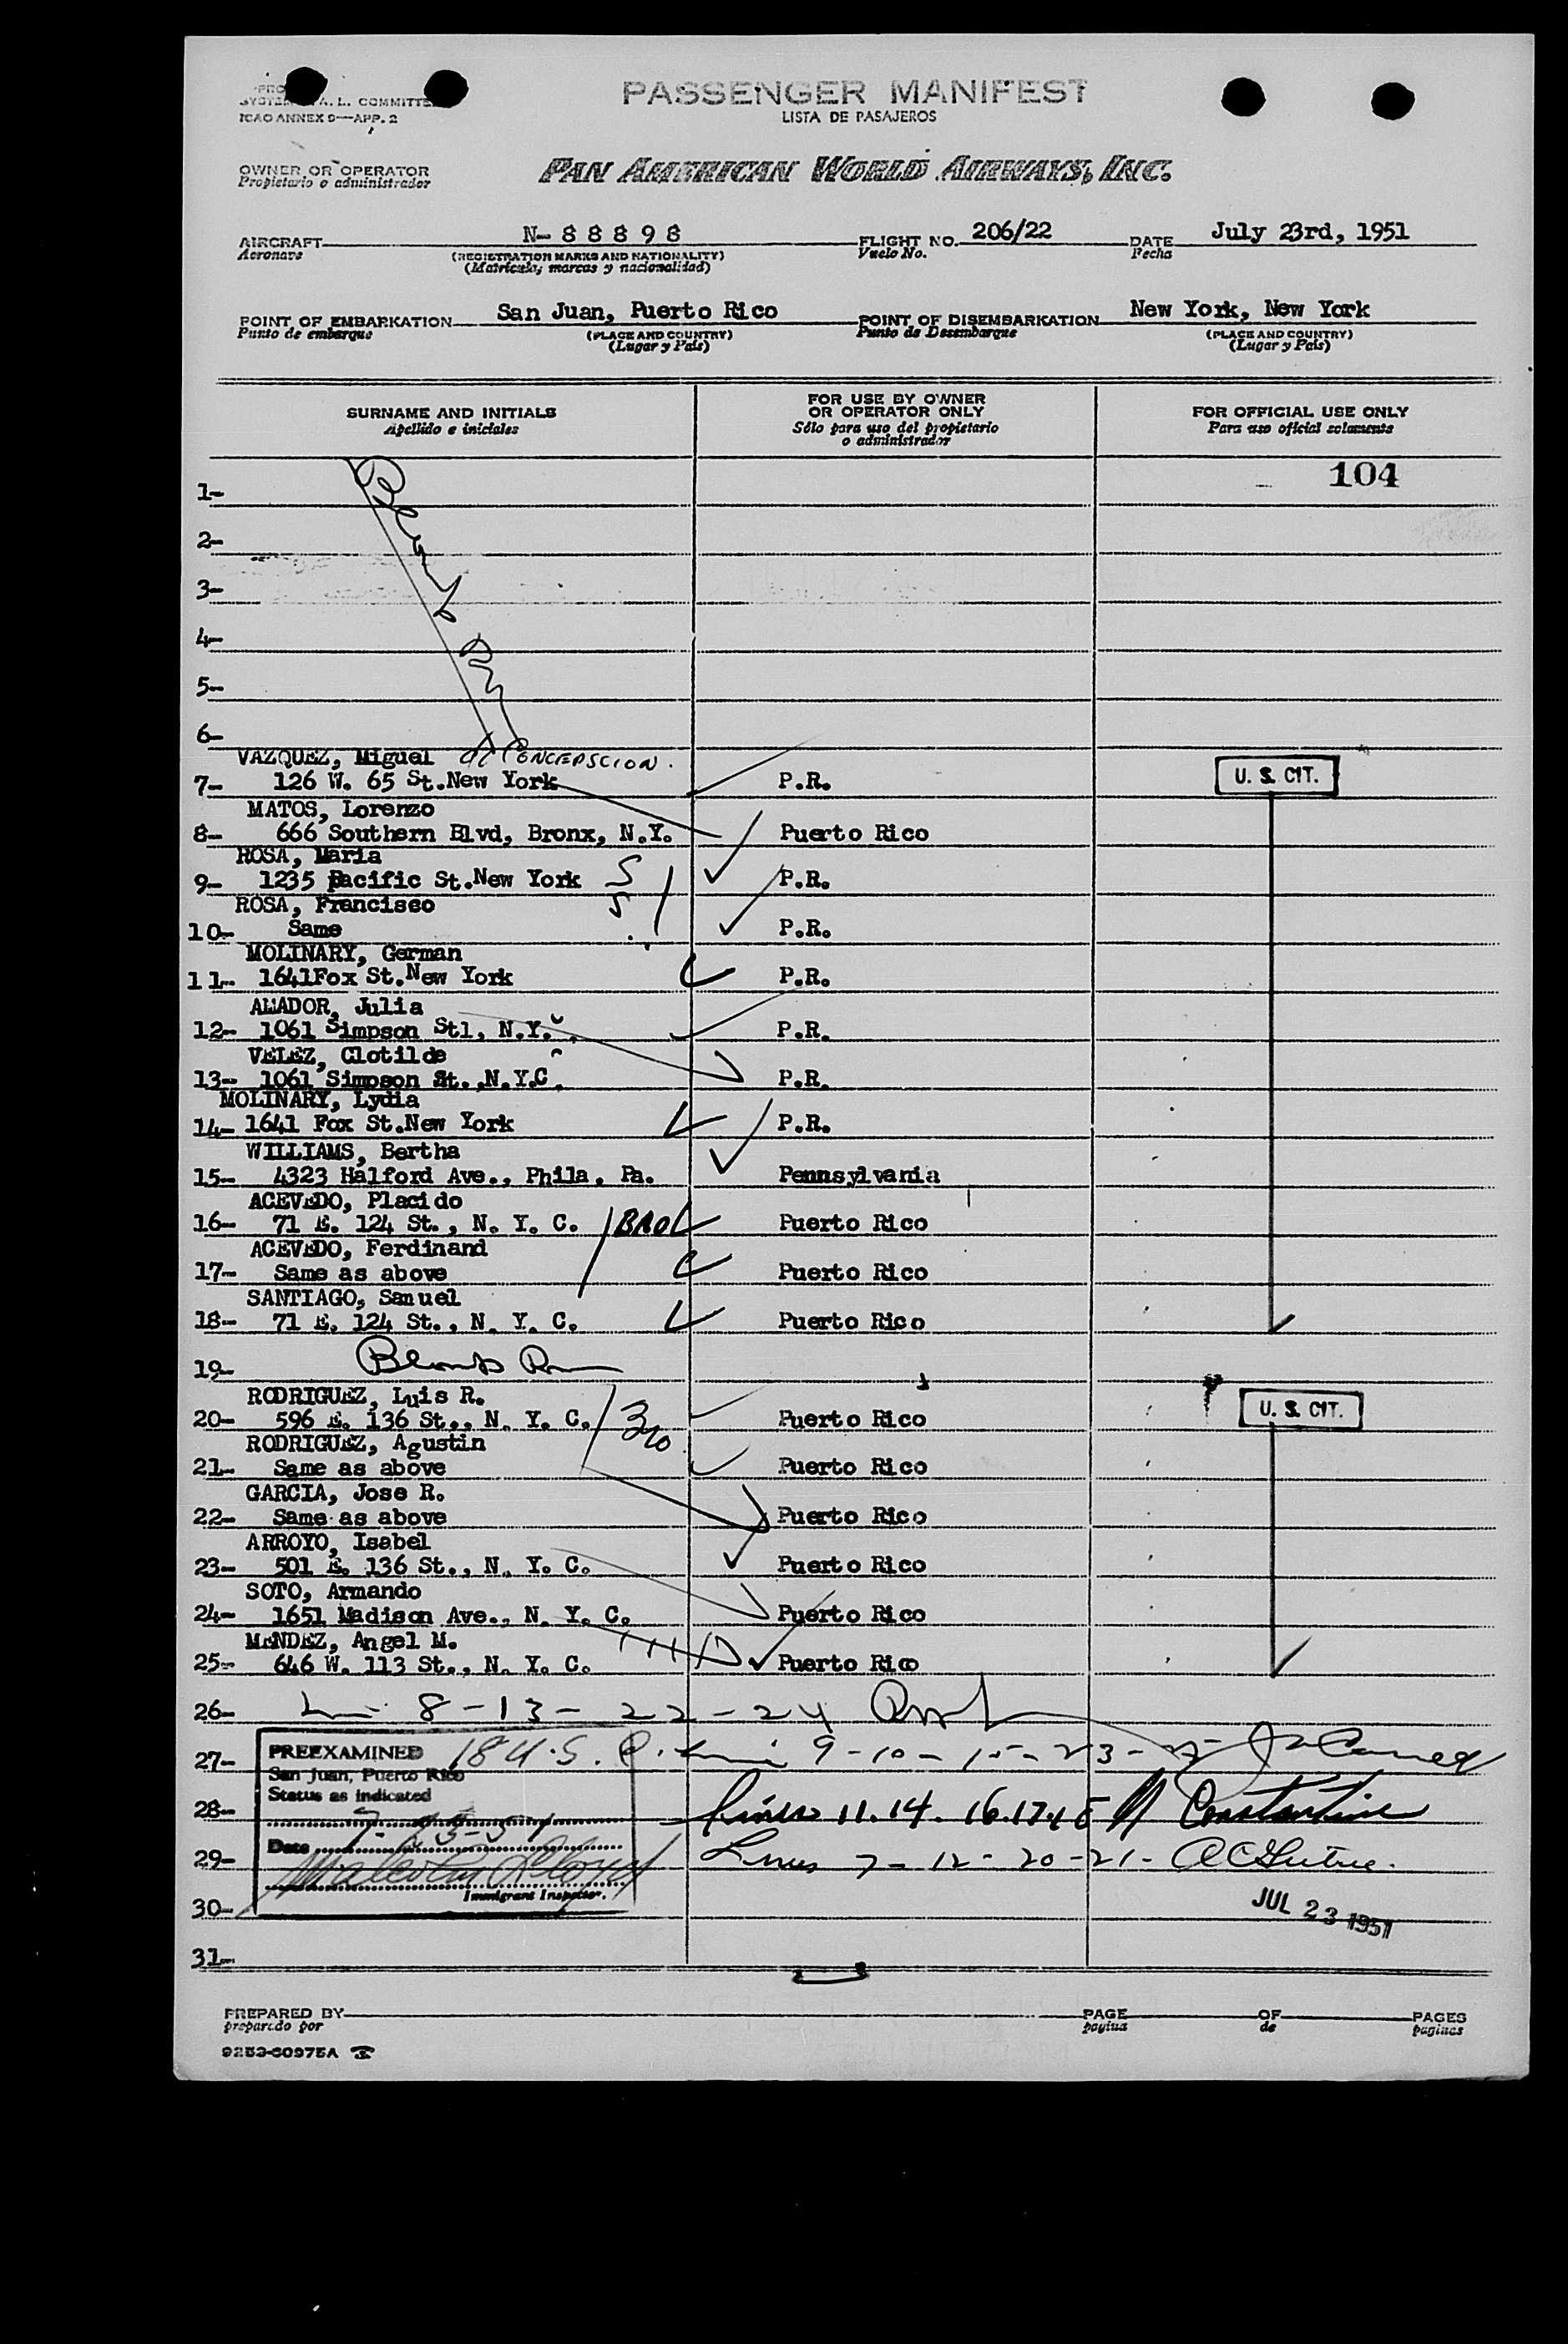 A. L. COMMITTE
ICAO ANNEX 9—APP. 2
PASSENGER MANIFEST
LISTA DE PASAJEROS
OWNER OR OPERATOR
Propietario o administrador
PAN AMERICAN WORLD AIRWAYS, INC.
AIRCRAFT N-88898 FLIGHT NO. 206/22 DATE July 23rd, 1951
Aeronave (REGISTRATION MARKS AND NATIONALITY) Vuelo No. Fecha
(Matricula, marcas y nacionalidad)
POINT OF EMBARKATION San Juan, Puerto Rico POINT OF DISEMBARKATION New York, New York
Punto de embarque (PLACE AND COUNTRY) Punto de Desembarque (PLACE AND COUNTRY)
(Lugar y País) (Lugar y País)
SURNAME AND INITIALS FOR USE BY OWNER OR OPERATOR ONLY FOR OFFICIAL USE ONLY
Apellido e iniciales Sólo para uso del propietario o administrador Para uso oficial solamente
104
1-
2-
3-
4-
5-
6-
VAZQUEZ, Miguel
7- 126 W. 65 St.New York P.R. U. S. CIT.
MATOS, Lorenzo
8- 666 Southern Blvd, Bronx, N.Y. Puerto Rico
ROSA, Maria
9- 1235 Pacific St.New York P.R.
ROSA, Francisco
10- Same P.R.
MOLINARY, German
11- 1641Fox St.New York P.R.
AMADOR, Julia
12- 1061 Simpson Stl, N.Y. P.R.
VELEZ, Clotilde
13- 1061 Simpson St.,N.Y.C. P.R.
MOLINARY, Lydia
14- 1641 Fox St.New York P.R.
WILLIAMS, Bertha
15- 4323 Halford Ave., Phila. Pa. Pennsylvania
ACEVEDO, Placido
16- 71 E. 124 St., N. Y. C. BRO Puerto Rico
ACEVEDO, Ferdinand
17- Same as above Puerto Rico
SANTIAGO, Samuel
18- 71 E. 124 St., N. Y. C. Puerto Rico
19-
RODRIGUEZ, Luis R.
20- 596 E. 136 St., N. Y. C. Bro Puerto Rico U. S. CIT.
RODRIGUEZ, Agustin
21- Same as above Puerto Rico
GARCIA, Jose R.
22- Same as above Puerto Rico
ARROYO, Isabel
23- 501 E. 136 St., N. Y. C. Puerto Rico
SOTO, Armando
24- 1651 Madison Ave., N. Y. C. Puerto Rico
MENDEZ, Angel M.
25- 646 W. 113 St., N. Y. C. Puerto Rico
26- 8-13-22-24
27- PREEXAMINED 18 U.S.C. 9-10-15-23-25
San Juan, Puerto Rico
Status as indicated
28- Lines 11.14. 16.17.18 Constantine
Date
29- Lines 7-12-20-21-
Immigrant Inspector.
30- JUL 23 1951
31-
PREPARED BY PAGE OF PAGES
preparado por pagina de paginas
9253-60975A